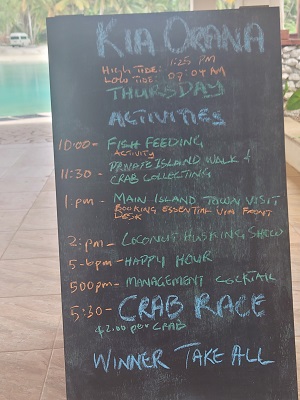 KIA ORANA
HIGH TIDE: 1:25 PM
LOW TIDE: 07:04AM
THURSDAY
ACTIVITIES
10:00- FISH FEEDING
ACTIVITY
11:30 - PRIVATE ISLAND WALK &
CRAB COLLECTING
1:pm- MAIN ISLAND TOWN VISIT
BOOKING ESSENTIAL VIA FRONT
DESK
2:pm- COCONUT HUSKING SHOW
5-6pm- HAPPY HOUR
500pm- MANAGEMENT COCKTAIL
5:30- CRAB RACE
$2.00 per CRAB
WINNER TAKE ALL